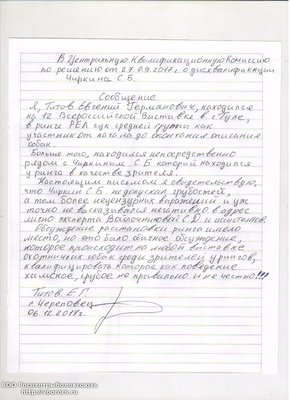 В Центральную Квалификационную Комиссию
по решению от 27.09.2017 г. о дисквалификации
Чиркина С.Б.
Сообщение
Я, Титов Евгений Германович, находился
на 12 Всероссийской Выставке в г. Туле,
в ринге РЕЛ сук средней группы как
участник от начала до окончания описания
собак.
Больше того, находился непосредственно
рядом с Чиркиным С.Б. который находился
у ринга в качестве зрителя.
Настоящим письмом я свидетельствую,
что Чиркин С.Б. не допускал грубостей,
а тем более нецензурных выражений и уж
точно не высказывался негативно в адрес
мной эксперта Волочникова С.Д. и
Обсуждение расстановки ринга имело
место, но это было обычное обсуждение,
которое происходит на любой выставке
охотничьих собак среди зрителей у рингов,
квалифицировать которое как поведение
хамское, грубое не правильно и не честно!!!
Титов. Е.Г.
г. Череповец
06.12.2017 г.
ВОО Росохотрыболовсоюз
http://voorors.ru/